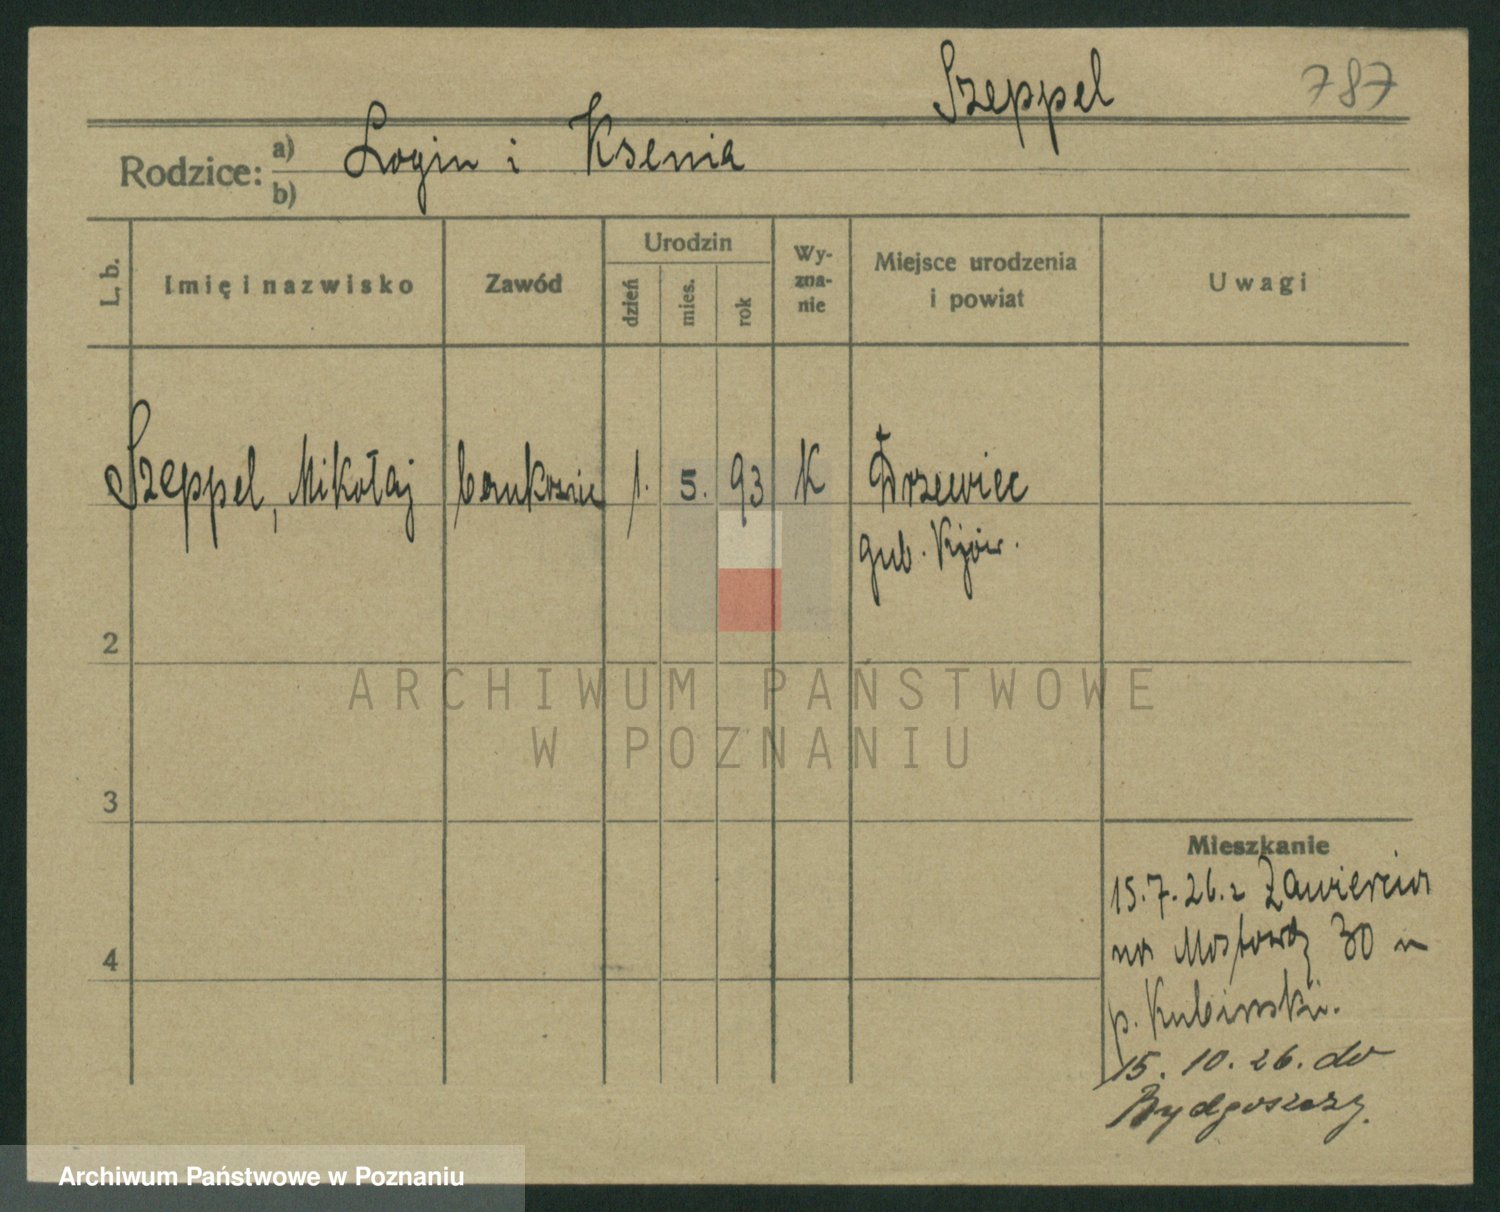 Szeppel 787
Rodzice: a) Login i Ksenia
b)
L. b. Imię i nazwisko Zawód Urodzin dzień mies. rok Wyznanie Miejsce urodzenia i powiat Uwagi
Szeppel, Mikołaj 1. 5. 93 K Drzewiec
gub. Kjów.
2
ARCHIWUM PAŃSTWOWE
W POZNANIU
3
Mieszkanie
15.7.26. z Zawiercia
na Mostową 30 u
p. Kubinski.
4
15. 10. 26. do
Bydgoszczy.
Archiwum Państwowe w Poznaniu